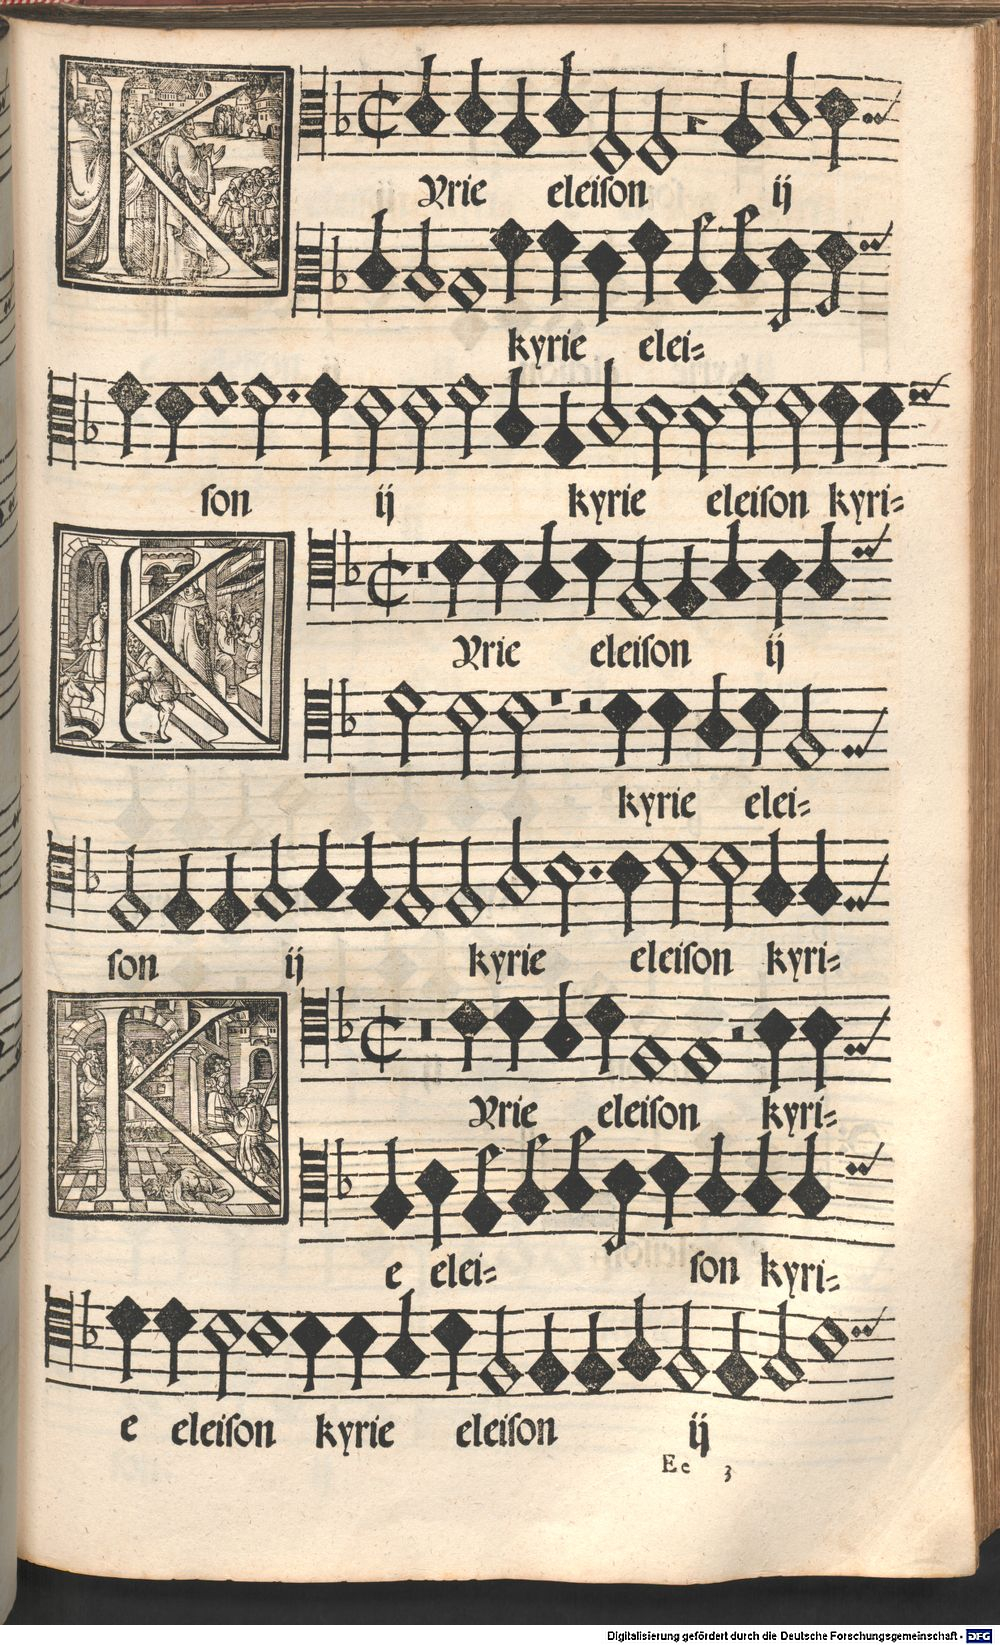 KYrie eleiſon ij
kyrie elei⸗
ſon ij kyrie eleiſon kyri⸗
KYrie eleiſon ij
kyrie elei⸗
ſon ij kyrie eleiſon kyri⸗
KYrie eleiſon kyri⸗
e elei⸗ ſon kyri⸗
e eleiſon kyrie eleiſon ij
Ee 3
Digitalisierung gefördert durch die Deutsche Forschungsgemeinschaft - DFG